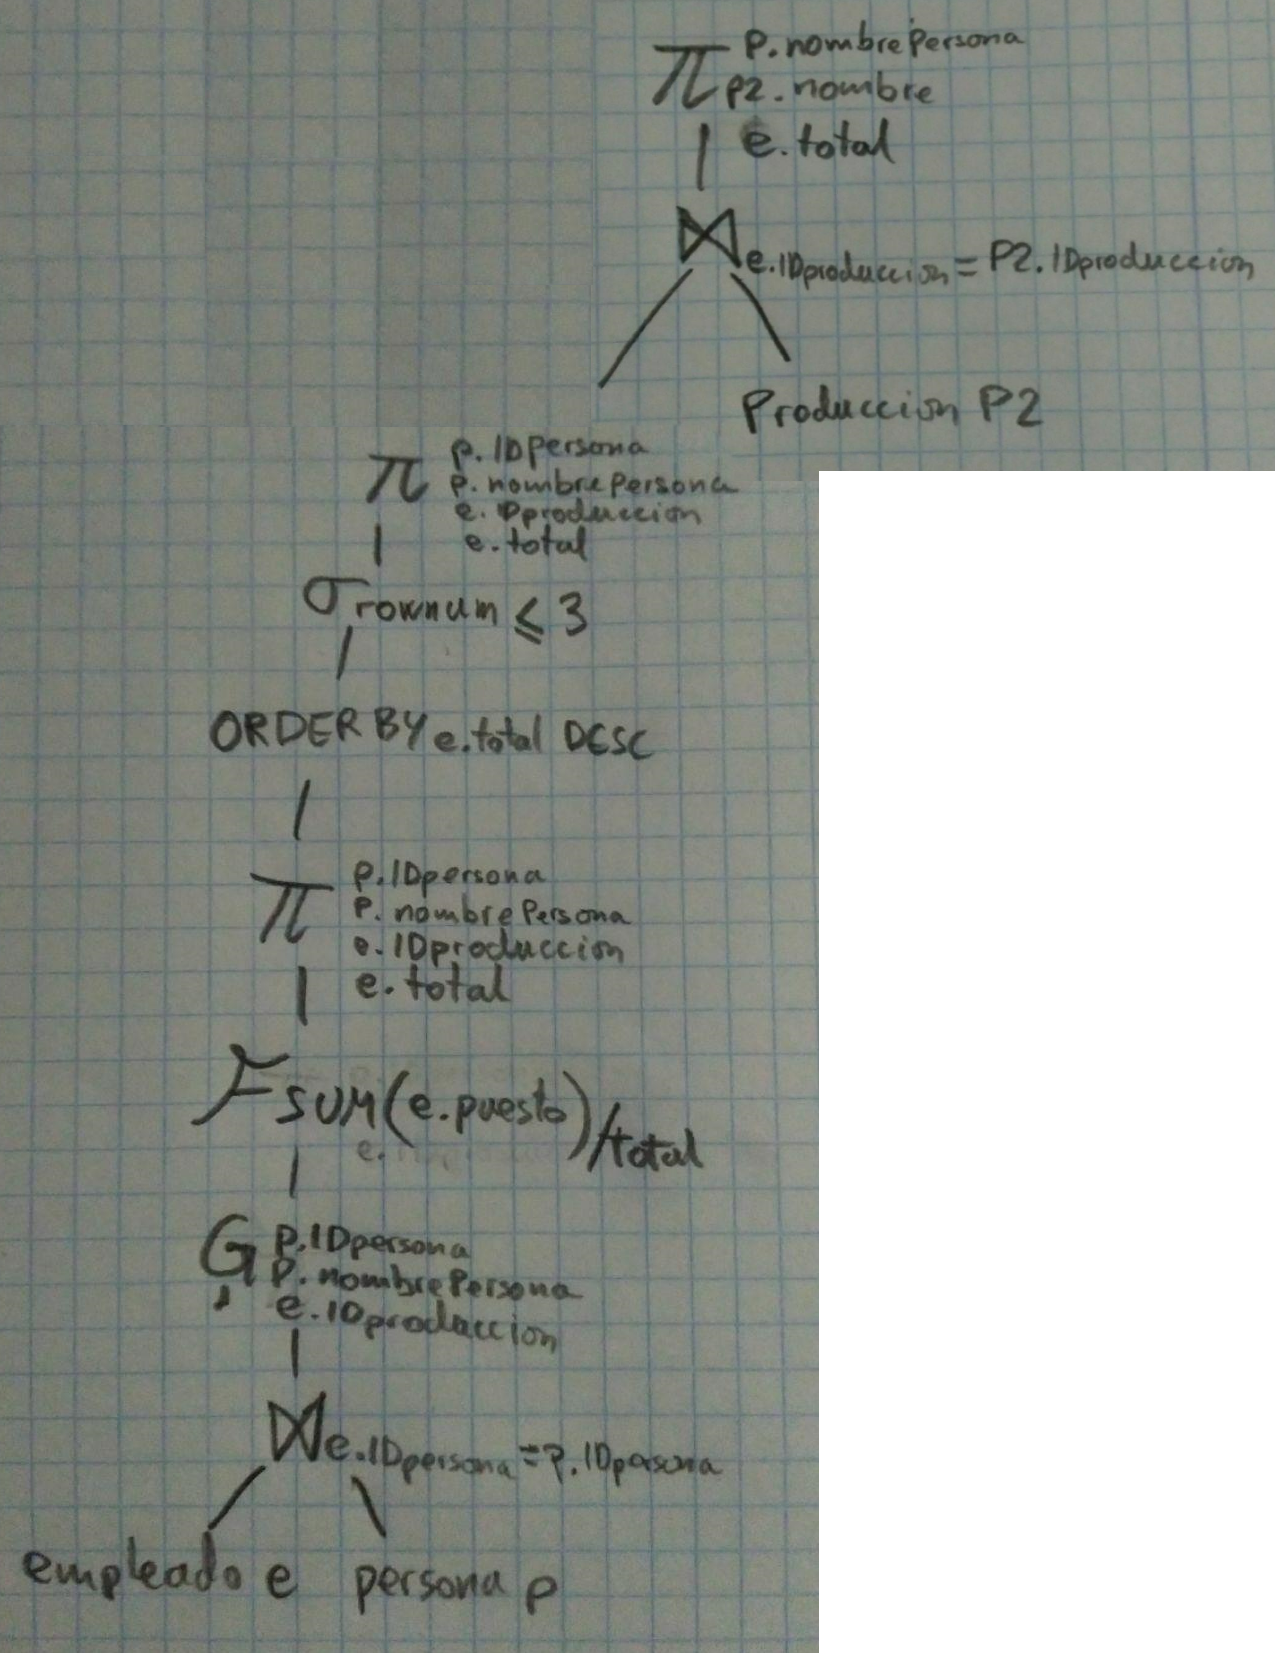 π P.nombrePersona
P2.nombre
e.total
⋈ e.IDproduccion = P2.IDproduccion
Produccion P2
π p.IDpersona
p.nombrePersona
e.IDproduccion
e.total
σ rownum ≤ 3
ORDER BY e.total DESC
π p.IDpersona
p.nombrePersona
e.IDproduccion
e.total
F SUM(e.puesto)/total
e.
G p.IDpersona
P.nombrePersona
e.IDproduccion
⋈ e.IDpersona = p.IDpersona
empleado e persona p